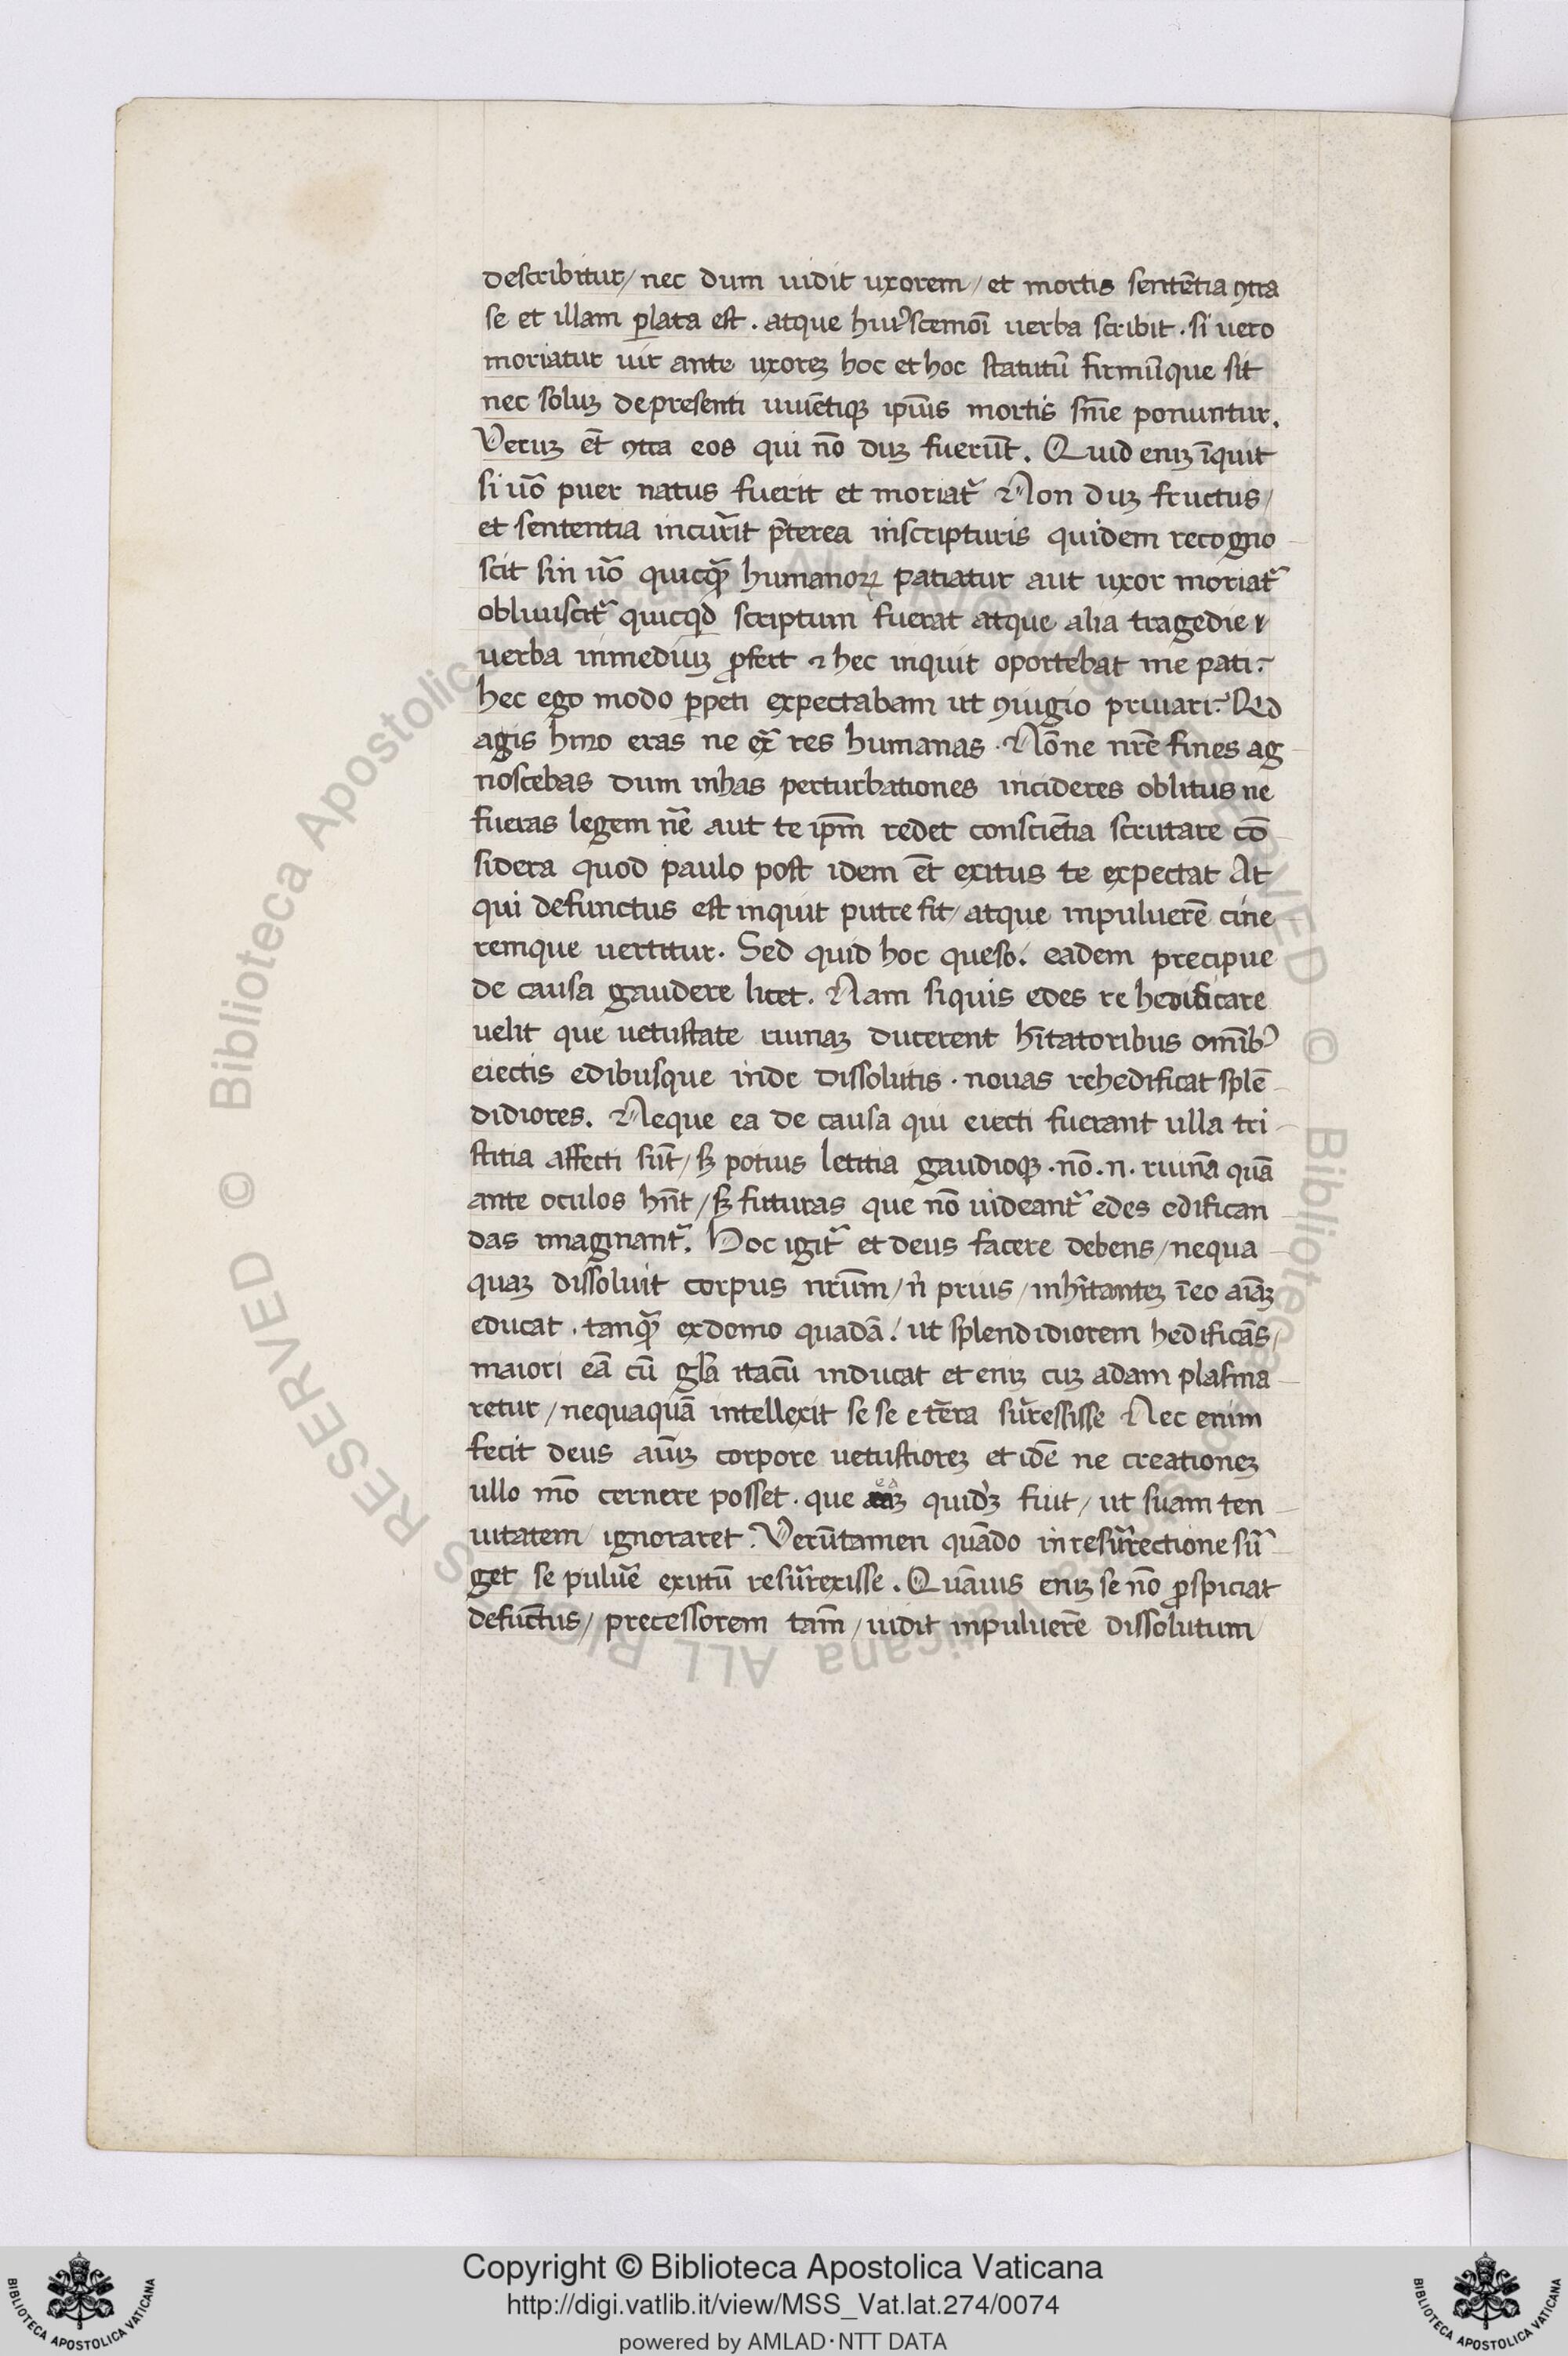 describitur/ nec dum uidit uxorem/ et mortis sentētia ꝯtra
se et illam ꝑlata est . atque huiꝰscemoī uerba scribit . si uero
moriatur uir ante uxoreꝫ hoc et hoc statutū firmūque sit
nec soluꝫ de presenti uiuētiqꝫ ipīus mortis snīe ponuntur.
Ueruꝫ et̄ ꝯtra eos qui nō duꝫ fuerūt. Quid eniꝫ īquit
si uō puer natus fuerit et moriat᷑ Non duꝫ fructus/
et sententia incurrit p̄terea in scripturis quidem recogno
scit sin uō quicqȝ humanoꝝ patiatur aut uxor moriat᷑
obliuiscit᷑ quicqd scriptum fuerat atque alia tragedie
uerba in mediuꝫ ꝓfert ⁊ hec inquit oportebat me pati.
hec ego modo ꝑpeti expectabam ut ꝯiugio priuari. Qd
agis hmo eras ne ext᷑ res humanas . Nōne nrē fines ag
noscebas dum in has perturbationes incideres oblitus ne
fueras legem nrē aut te ipm̄ redet conscientia scrutare cō
sidera quod paulo post idem et̄ exitus te expectat At
qui defunctus est inquit putre fit/ atque in puluerē cine
remque uertitur. Sed quid hoc queso. eadem precipue
de causa gaudere licet. Nam si quis edes re hedificare
uelit que uetustate ruinaꝫ ducerent hītatoribus omībꝰ
eiectis edibusque inde dissolutis . nouas rehedificat splē
didiores. Neque ea de causa qui eiecti fuerant ulla tri
stitia affecti sūt/ sꝫ potius letitia gaudioqꝫ . nō . n . ruinā quā
ante oculos hn̄t/ sꝫ futuras que nō uideant᷑ edes edifican
das imaginant᷑. Hoc igit᷑ et deus facere debens/ nequa
quaꝫ dissoluit corpus nrūm/ n̄ prius/ inhītanteꝫ ī eo aīaꝫ
educat . tanqȝ ex domo quadā. ut splendidiorem hedificās/
maiori eā cū glā itacū inducat et eniꝫ cuꝫ adam plasma
retur/ nequaquā intellexit se se e terra surressisse Nec enim
fecit deus aīuꝫ corpore uetustioreꝫ et idē ne creationeꝫ
ullo mō cernere posset . que ea quidꝫ fuit/ ut suam ten
uitatem/ ignoraret. Uerūtamen quādo in resurrectione sur
get se puluē exutū resurrexisse. Quāuis eniꝫ se nō ꝓspiciat
defunctus/ precessorem tam̄/ uidit in puluerē dissolutum/
Copyright © Biblioteca Apostolica Vaticana
http://digi.vatlib.it/view/MSS_Vat.lat.274/0074
powered by AMLAD·NTT DATA
BIBLIOTECA APOSTOLICA VATICANA
BIBLIOTECA APOSTOLICA VATICANA